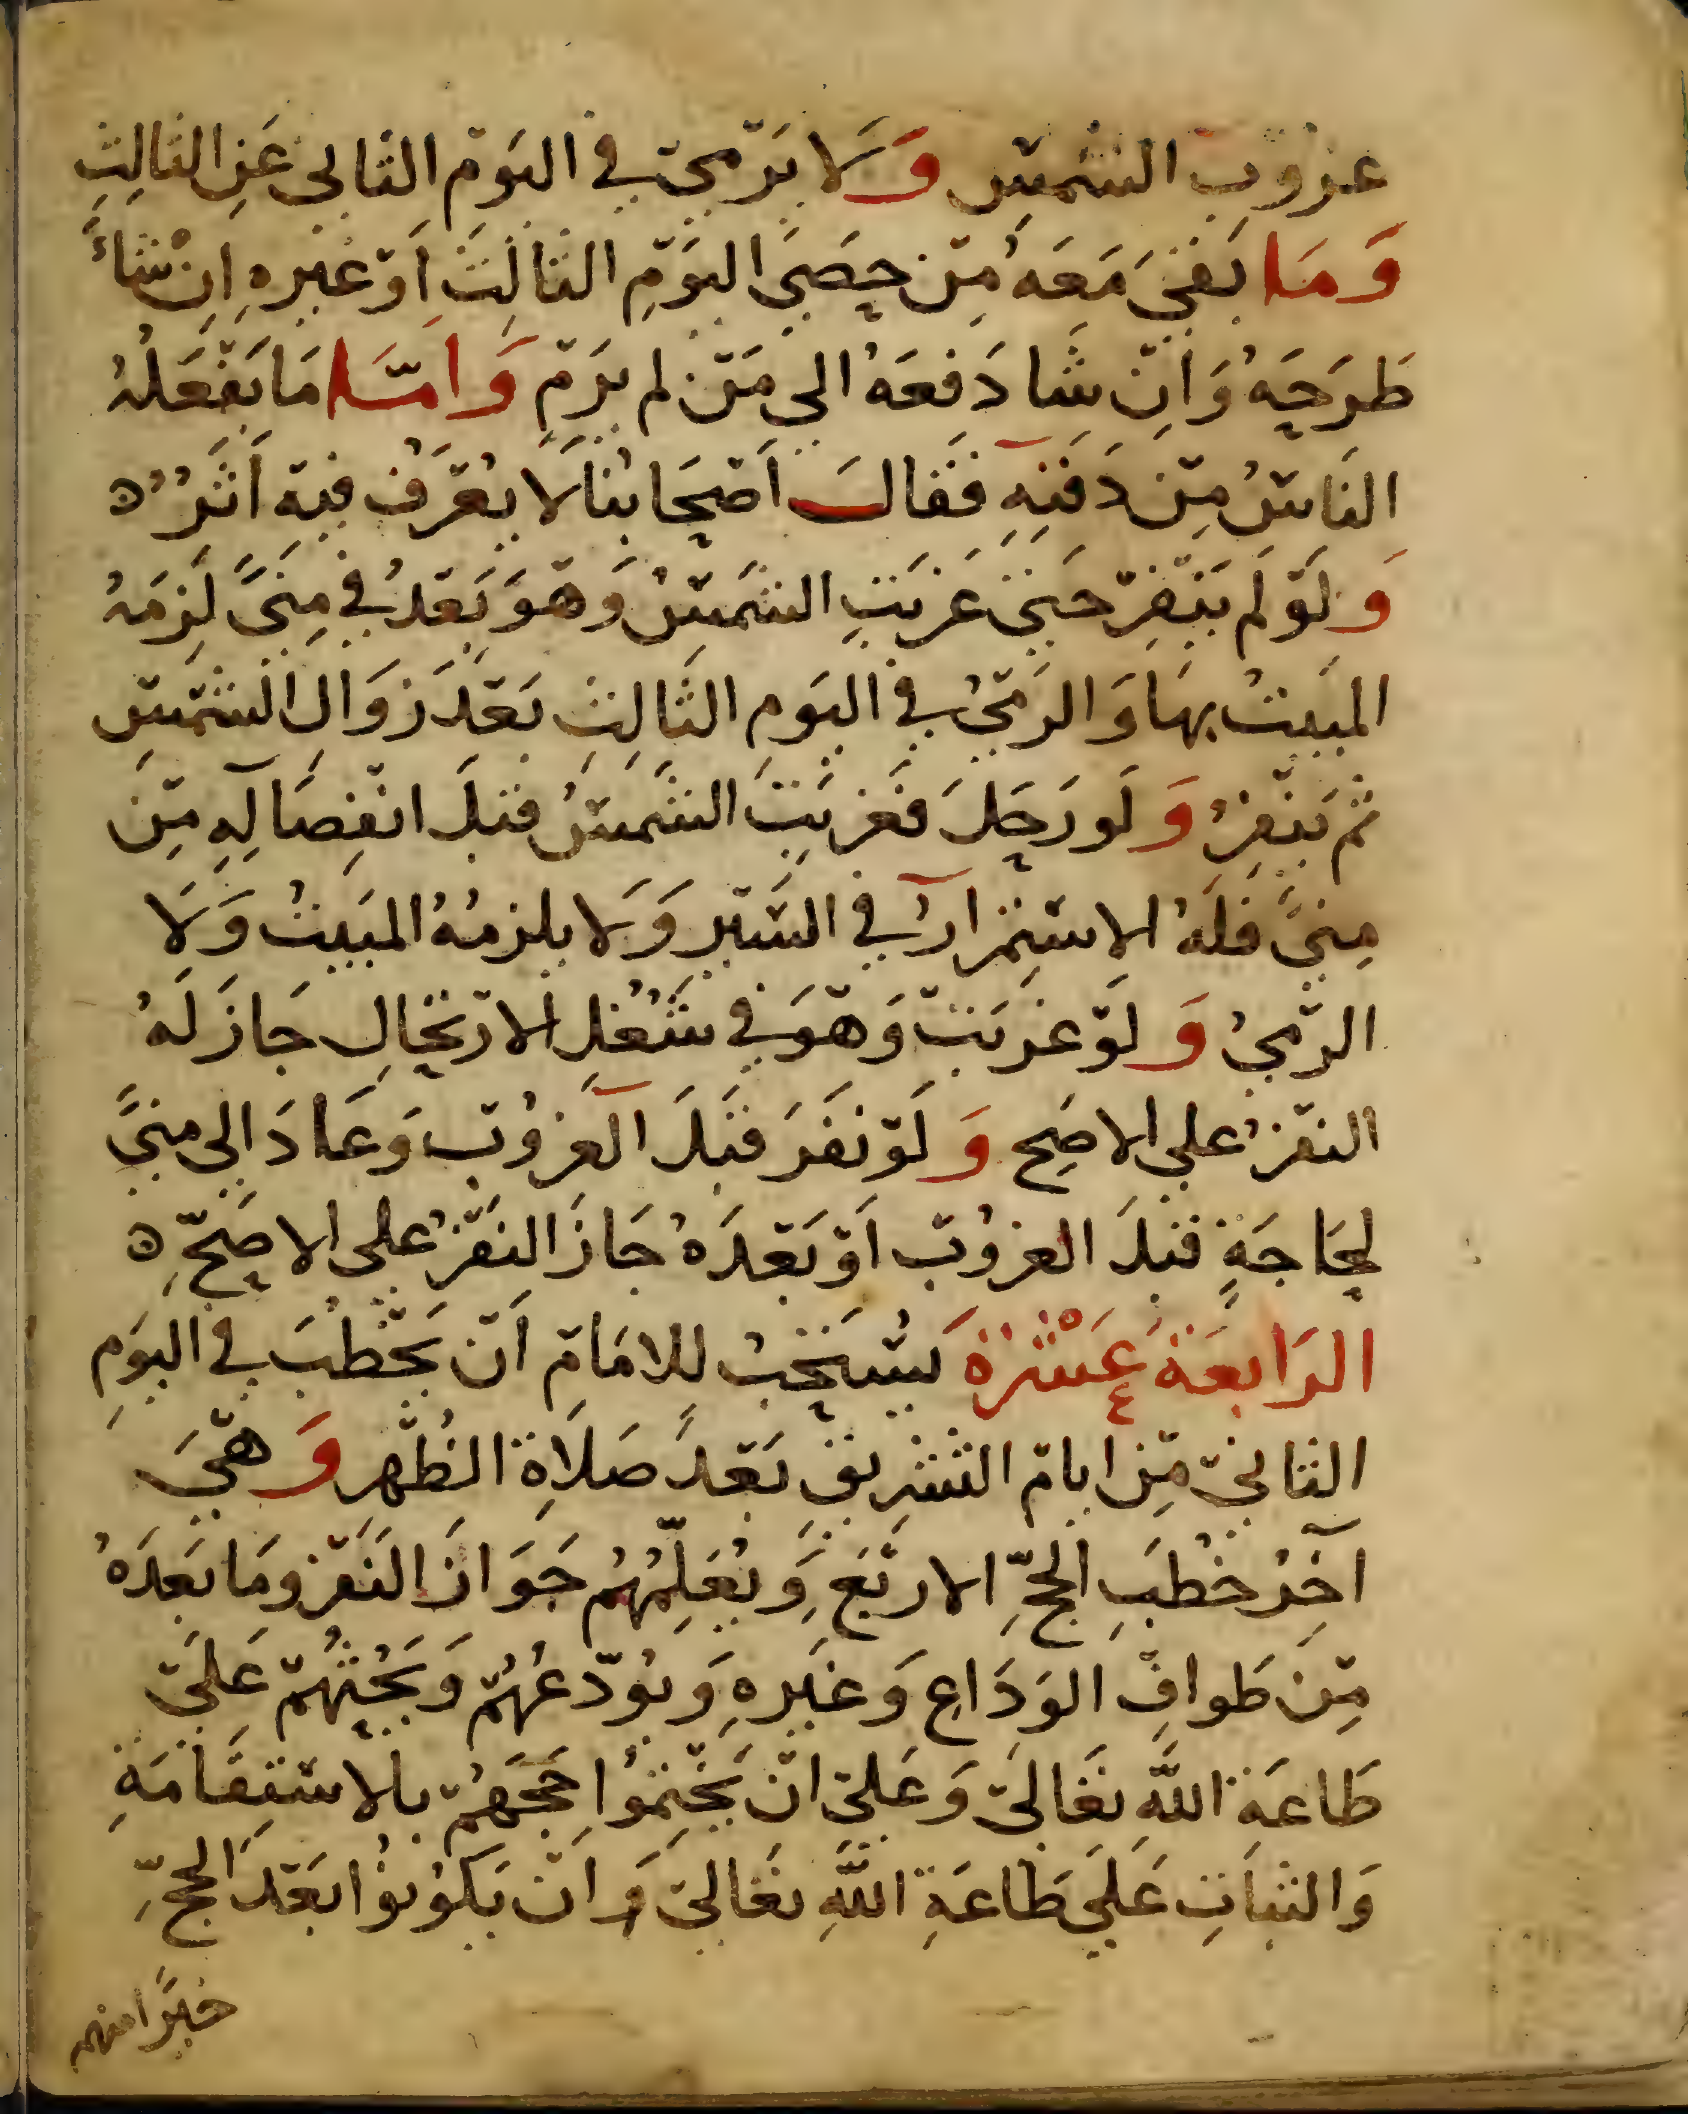 غروب الشمس وَلَا يَرمي في اليَوم الثاني عَنِ الثالِثِ
وَمَا بَقيَ مَعَهُ مِن حَصَى اليَومِ الثالِثَ اَو غيرهِ اِنْ شاءَ
طَرَحَهُ وَاِن شا دَفعَهُ الى مَن لم يَرمِ وَامَّا مَا يَفعَلُهُ
النَاسُ مِن دَفنِهِ فَقالَ اَصحَابُنا لَا يُعرَف فيه اَثَرٌ ٥
وَلَو لَم يَنفِر حَتى غَرَبَتِ الشَمسُ وَهوَ بَعدُ في مِنىً لَزِمَهُ
المَبيتُ بهَا وَالرَميُ في اليَومِ الثَالِثِ بَعدَ زوَالِ الشَمسِ
ثم يَنفِرُ وَلَو رَحَلَ فَغَرَبَتِ الشَمسُ قبلَ انفِصَالِهِ مِن
مِنىً فَلَهُ الاستِمرارُ في السَير وَلَا يلزمُهُ المَبيتُ وَلَا
الرّميُ وَلَو غرَبَت وَهوَ في شُغُلِ الارتحَالِ جَازَ لَهُ
النفرُ على الاصَح وَلَو نفَرَ قبَلَ الغرُوب وَعَادَ الى منىً
لحَاجَةٍ قبلَ الغروُب اَو بَعدَهُ جَازَ النَفرُ على الاصَحِّ ٥
الرَابعَة عَشْرَةَ يُستَحَبُ للامَامِ اَن يَخطُبَ في اليَومِ
الثاني مِن ايام التشرِيقِ بَعدَ صَلَاةِ الظُهر وَهيَ
آخِرُ خُطَبِ الحجِّ الاربَع وَيُعَلِّمُهُم جَوَازَ النَفر ومَا بَعدَهُ
مِن طَوافِ الوَدَاعِ وَغَيرهِ وَيُودّعُهُم وَيَحُثُهُم عَلَى
طَاعَة اللَّه تعَالى وَعَلى ان يَختِمُوا حَجَّهُم بالاستِقَامَةِ
وَالثباتِ عَلَى طَاعَةِ اللَّهِ تعَالى وَاَن يَكوُنوُا بَعدَ الحجِّ
خيرًا منهم